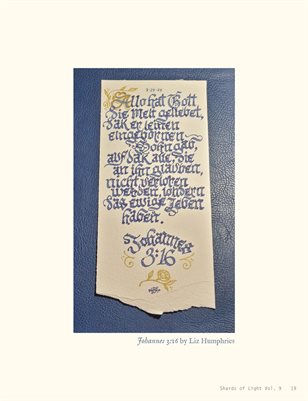 Also hat Gott
die Welt geliebet,
daß er seinen
eingebornen
Sohn gab,
auf daß alle, die
an ihn glauben,
nicht verloren
werden, sondern
das ewige Leben
haben.
Johannes
3:16
Johannes 3:16 by Liz Humphries
Shards of Light Vol. 9 19